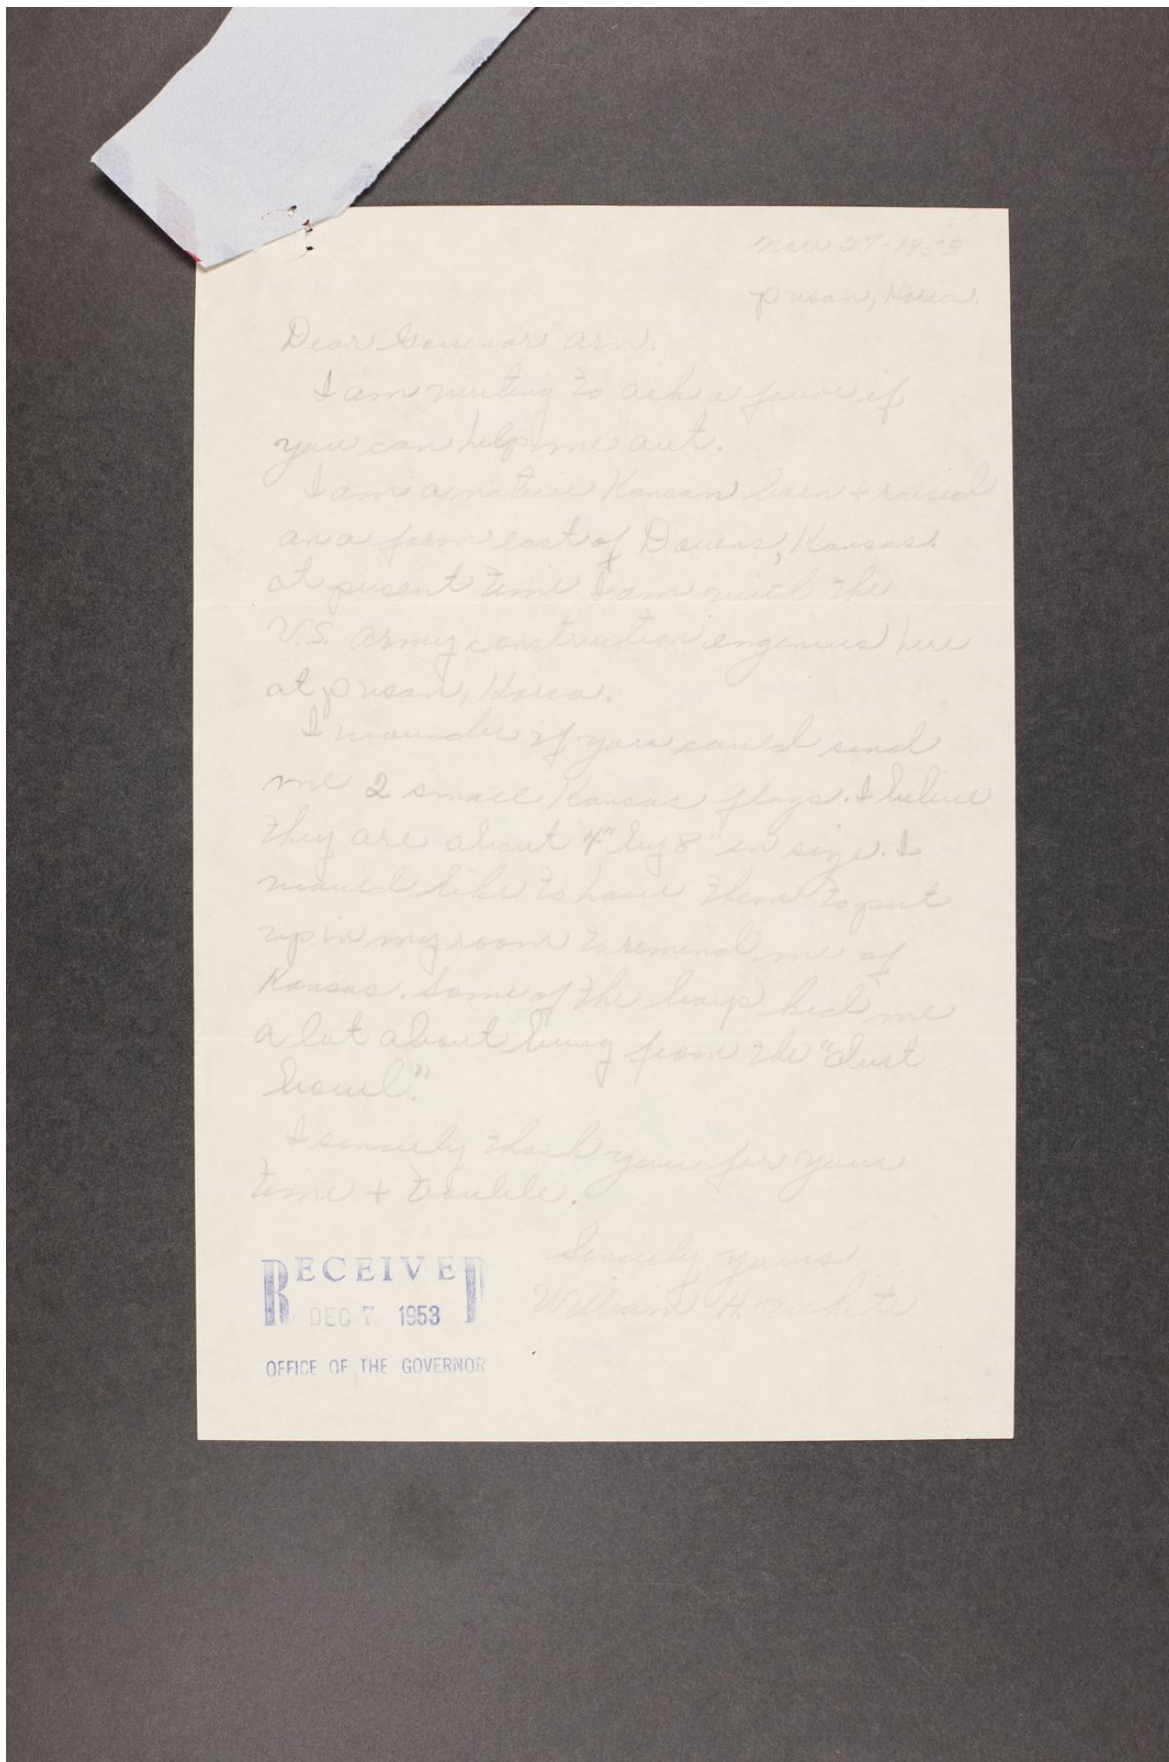 Nov 27-1953
pusan, Korea.
Dear Govenor arn.
I am writing to ask a favor if
you can help me out.
I am a native Kansan born + raised
on a farm east of Downs, Kansas.
at present time I am with the
U.S. Army construction engeniers here
at pusan, Korea.
I wounder if you could send
me 2 small Kansas flags. I believe
they are about 4" by 8" in size. I
would like to have them to put
up in my room to remind me of
Kansas. Some of the boys kid me
a lot about being from the "dust
bowl."
I sincerly thank you for your
time + trouble.
Sincerly yours
William H. White
RECEIVED
DEC 7 1953
OFFICE OF THE GOVERNOR